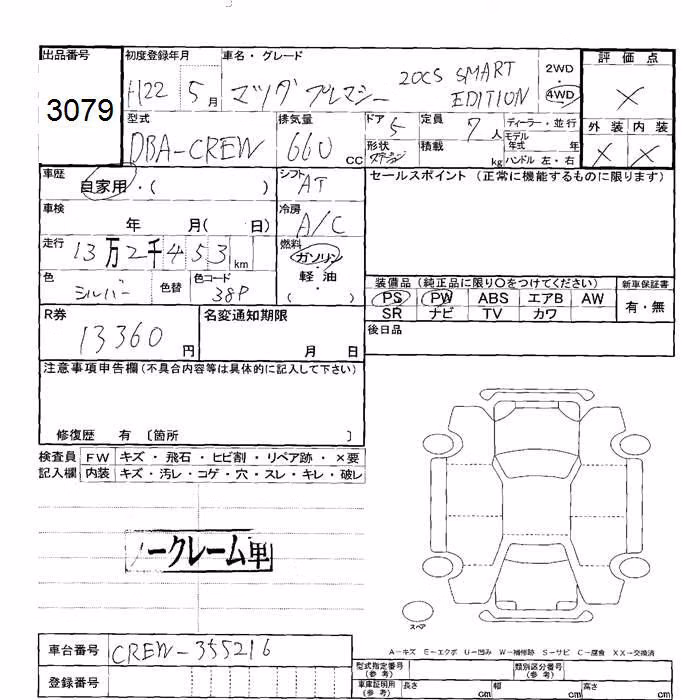 出品番号
3079
初度登録年月
H22 5月
車名・グレード
マツダ プレマシー 20CS SMART EDITION
2WD
・
4WD
評価点
×
外装 内装
× ×
型式
DBA-CREW
排気量
660 cc
ドア 5
形状 ステーション
定員 7人
積載 kg
ディーラー・並行
モデル
年式 年
ハンドル 左・右
車歴
自家用・( )
シフト
AT
セールスポイント (正常に機能するものに限ります)
車検
年 月( 日)
冷房
A/C
走行
13万2千453km
燃料
ガソリン
・
軽油
( )
色
シルバー
色替
色コード
38P
装備品 (純正品に限り〇をつけてください)
新車保証書
PS PW ABS エアB AW
SR ナビ TV カワ
有・無
R券
13360円
名変通知期限
月 日
後日品
注意事項申告欄(不具合内容等は具体的に記入して下さい)
修復歴 有 〔箇所 〕
検査員 FW キズ・飛石・ヒビ割・リペア跡・×要
記入欄 内装 キズ・汚レ・コゲ・穴・スレ・キレ・破レ
ノークレーム車
スペア
A−キズ E−エクボ U−凹み W−補修跡 S−サビ C−腐食 XX−交換済
車台番号
CREW-355216
登録番号
型式指定番号
(参考)
類別区分番号
(参考)
車庫証明用
(参考)
長さ cm 幅 cm 高さ cm